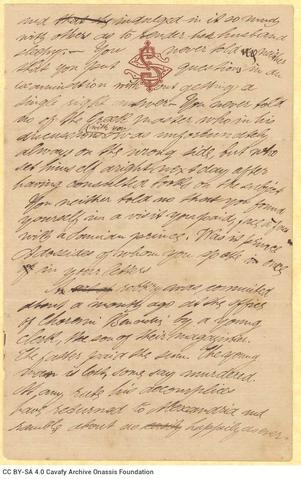 and indulged in it so much
with others as to render her husband
sleepy. — You never told us neither
that you put questions in an
examination without getting a
single right answer. You never told
us of the Greek master who in his
discussions with you was unfortunately
always on the wrong side, but who
set himself aright next day after
having consulted books on the subject.
You neither told us that you found
yourself in a visit you paid, face to face
with a Samian prince. Was it prince
of whom you speak in one
of your letters
In was committed
about a month ago at the office
of Choremi Benachi by a young
Clerk, the son of their magazinier.
The father paid the sum. The young
man is lost, some say murdered.
At any rate his accomplices
have returned to Alexandria and
ramble about as happily as ever.
CC BY-SA 4.0 Cavafy Archive Onassis Foundation